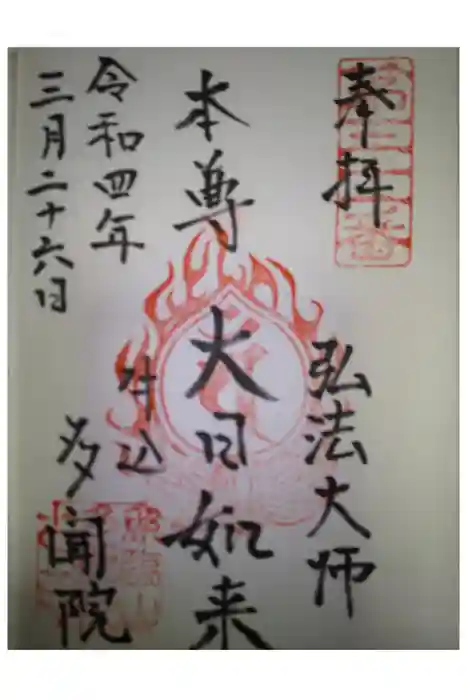 奉拝
弘法大師
本尊
大日如来
牛込
多聞院
令和四年
三月二十六日